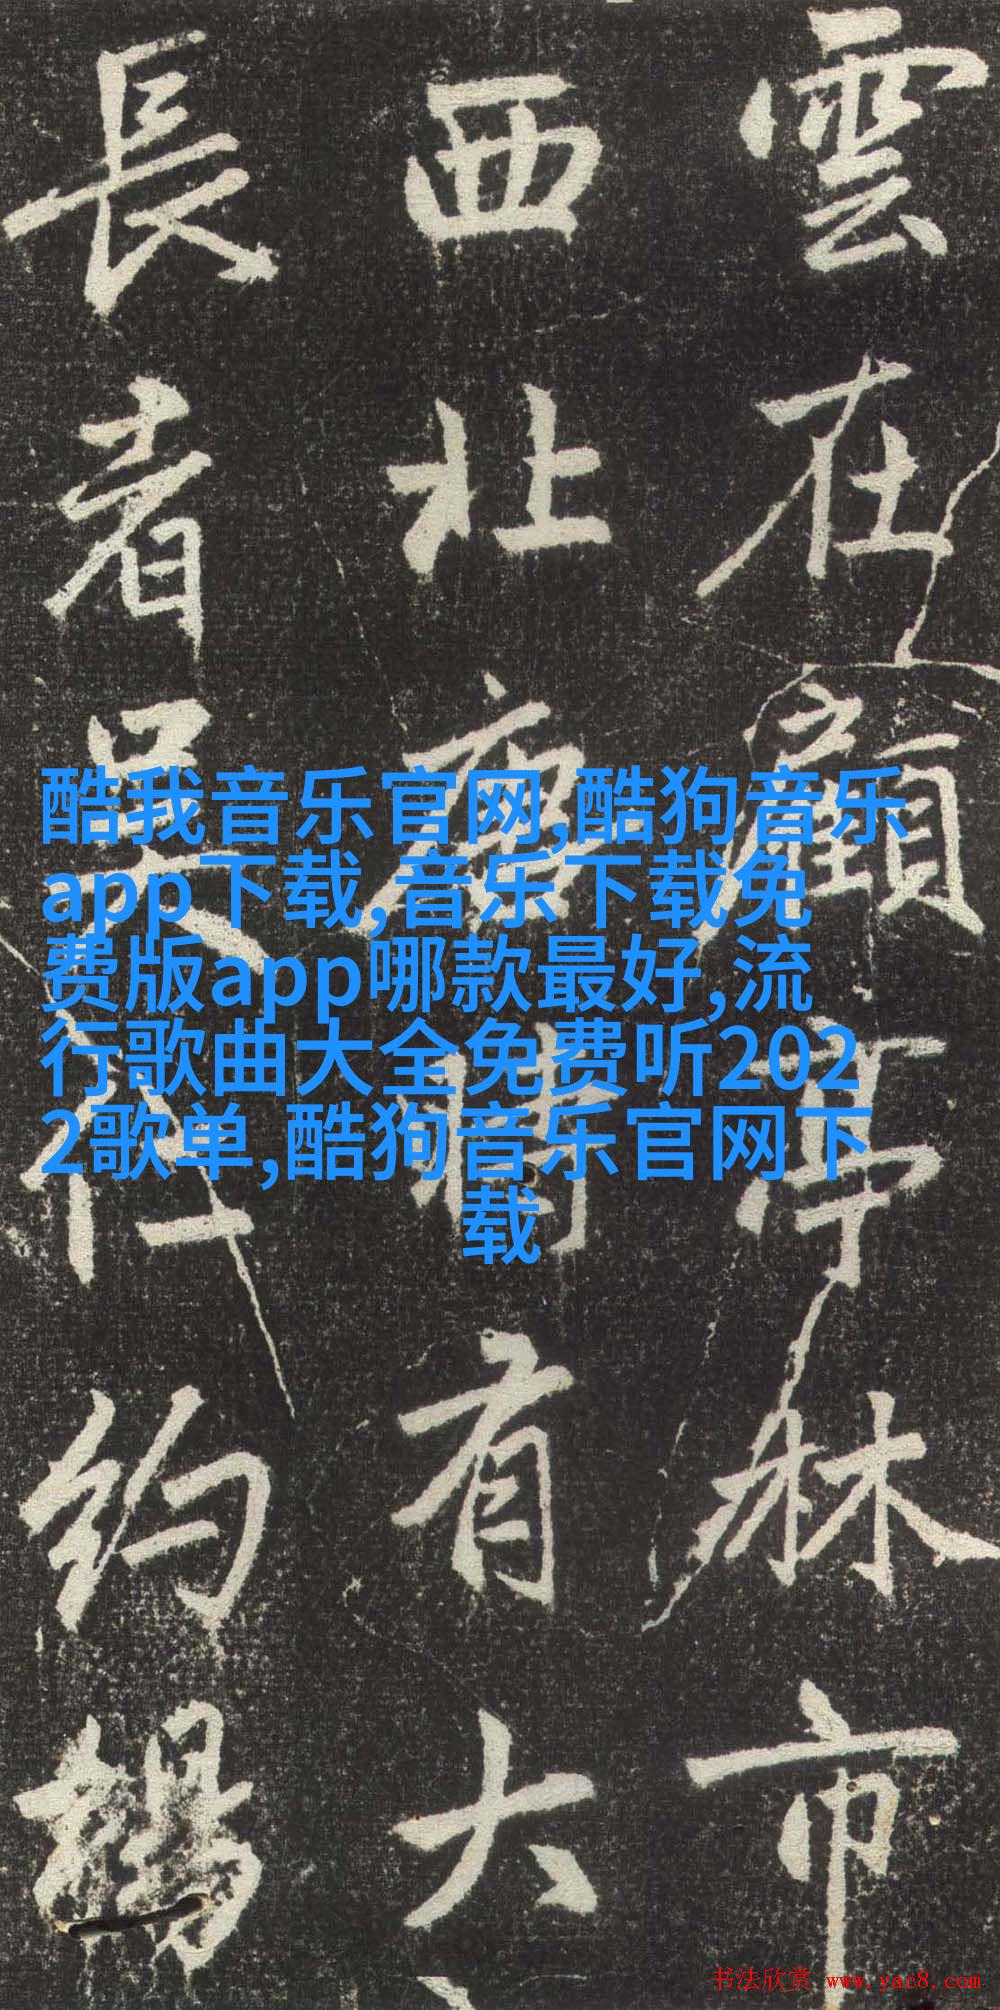 雲在顧亭林市
西北唐時有大
長者吳仁約
酷我音乐官网,酷狗音乐
app下载,音乐下载免
费版app哪款最好,流
行歌曲大全免费听202
2歌单,酷狗音乐官网下
载
书法欣赏 www.yac8.com